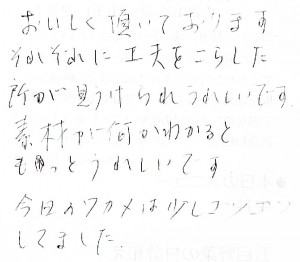 おいしく頂いております
それぞれに工夫をこらした
所が見うけられうれしいです。
素材が何かわかると
もっとうれしいです
今日のワカメは少しゴツゴツ
してました。